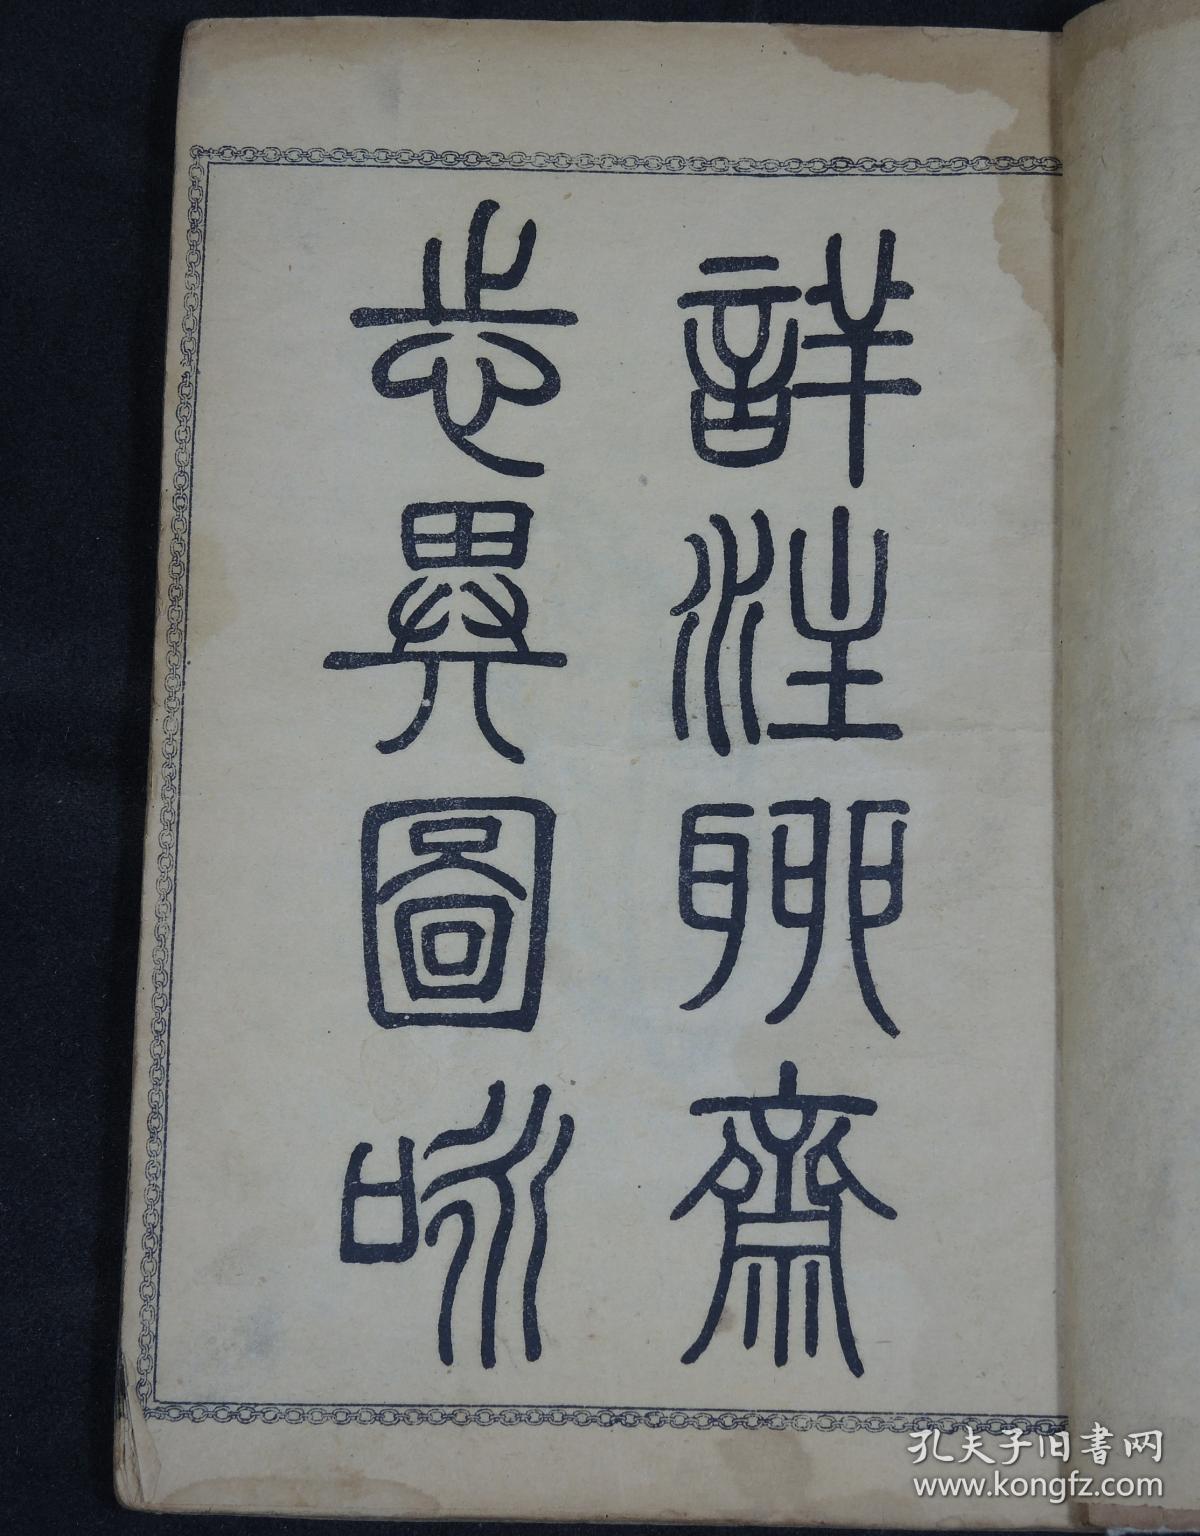 詳注聊齋
志異圖咏
孔夫子旧書网
www.kongfz.com